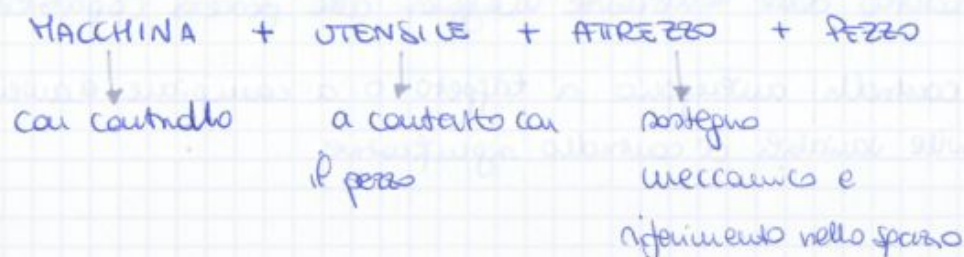 MACCHINA + UTENSILE + ATTREZZO + PEZZO
con controllo a contatto con sostegno
il pezzo meccanico e
riferimento nello spazio